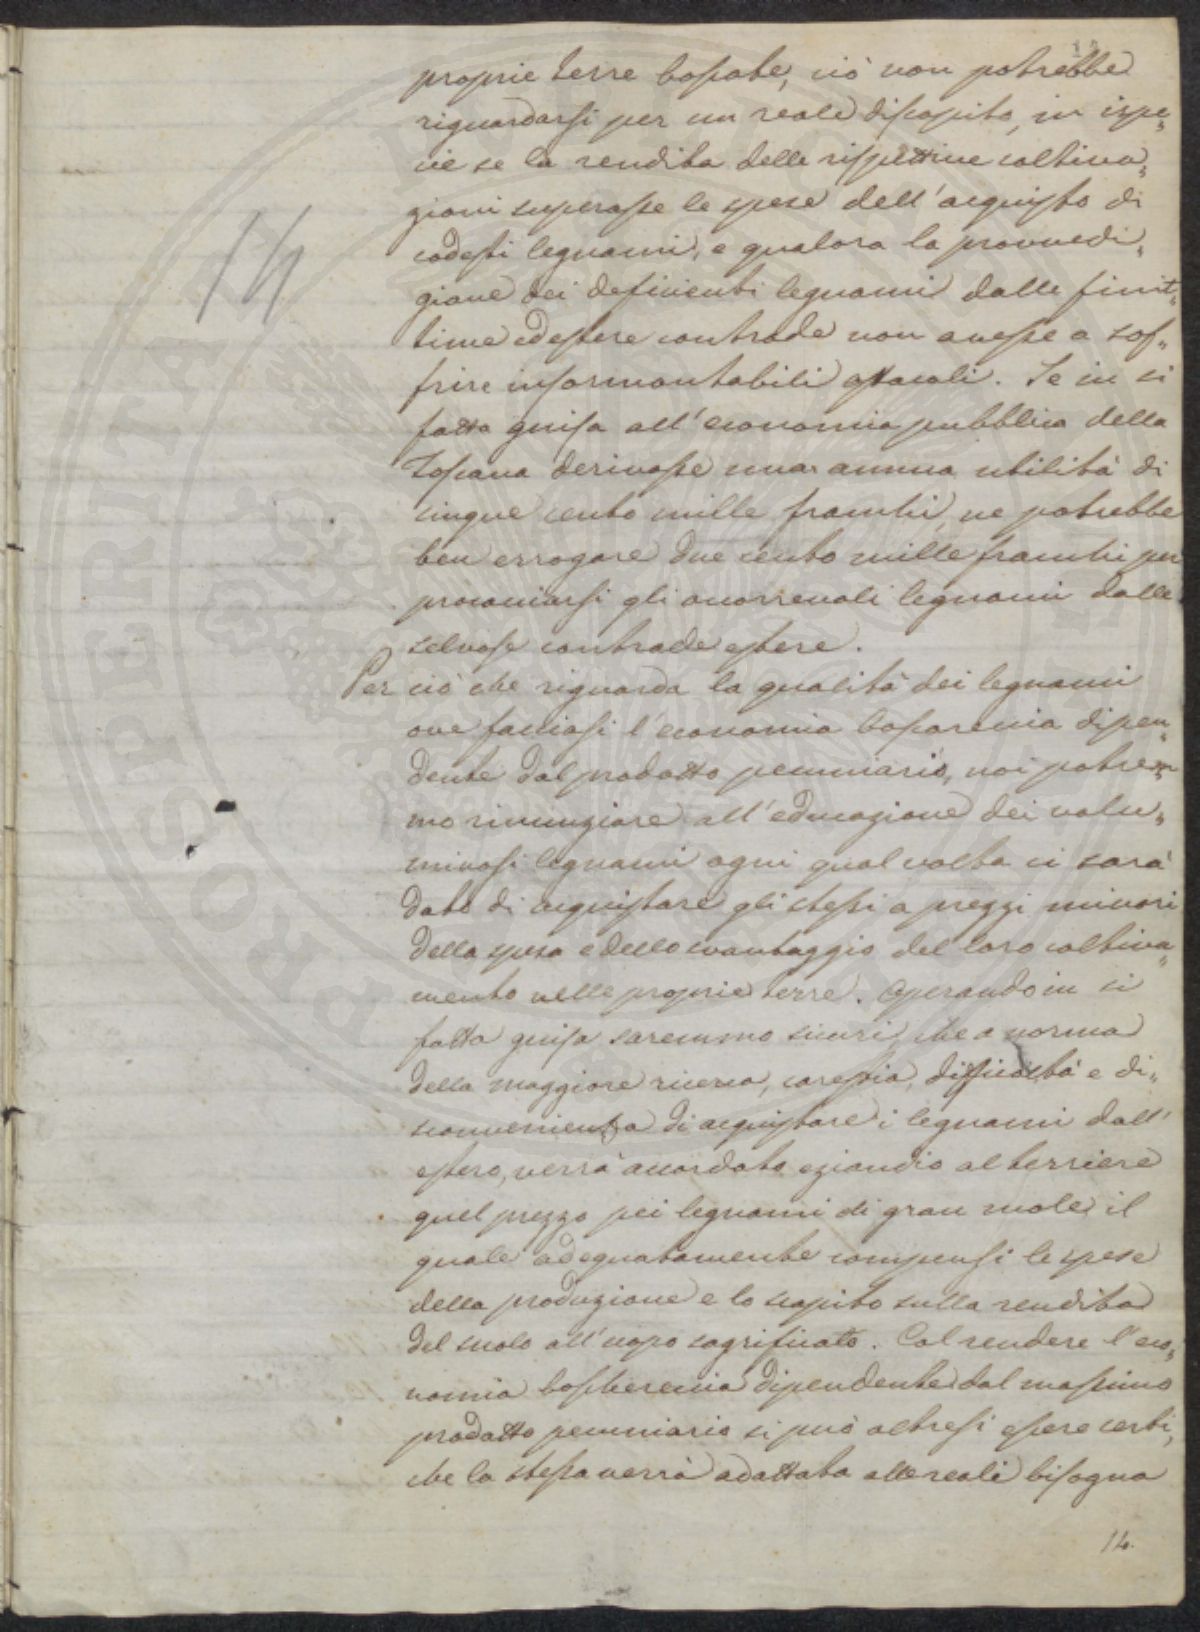 14
proprie terre boscate, ciò non potrebbe
riguardarsi per un reale discapito, in ispe„
cie se la rendita delle rispettive coltiva„
zioni superasse le spese dell'acquisto di
codesti legnami, e qualora la provvedi„
gione dei deficienti legnami dalle finit„
time ed estere contrade non avesse a sof„
frire insormontabili ostacoli. Se in si
fatta guisa all'economia pubblica della
Toscana derivasse una annua utilità di
cinque cento mille franchi, ne potrebbe
ben errogare due cento mille franchi per
procacciarsi gli occorrevoli legnami dalle
selvose contrade estere.
Per ciò che riguarda la qualità dei legnami
ove facciasi l'economia boscareccia dipen„
dente dal prodotto pecuniario, noi potrem„
mo rinunziare all'educazione dei volu„
minosi legnami ogni qual volta ci sarà
dato di acquistare gli stessi a prezzi minori
della spesa e dello svantaggio del loro coltiva„
mento nelle proprie terre. Operando in si
fatta guisa saremmo sicuri, che a norma
della maggiore ricerca, carestia, difficoltà e di„
sconvenienza di acquistare i legnami dall'
estero, verrà accordato eziandio al terriere
quel prezzo pei legnami di gran mole il
quale adeguatamente compensi le spese
della produzione e lo scapito sulla rendita
del suolo all'uopo sagrificato. Col rendere l'eco„
nomia boschereccia dipendente dal massimo
prodotto pecuniario si può altresi essere certi,
che la stessa verrà adattata alle reali bisogna
14.
PROSPERITAS